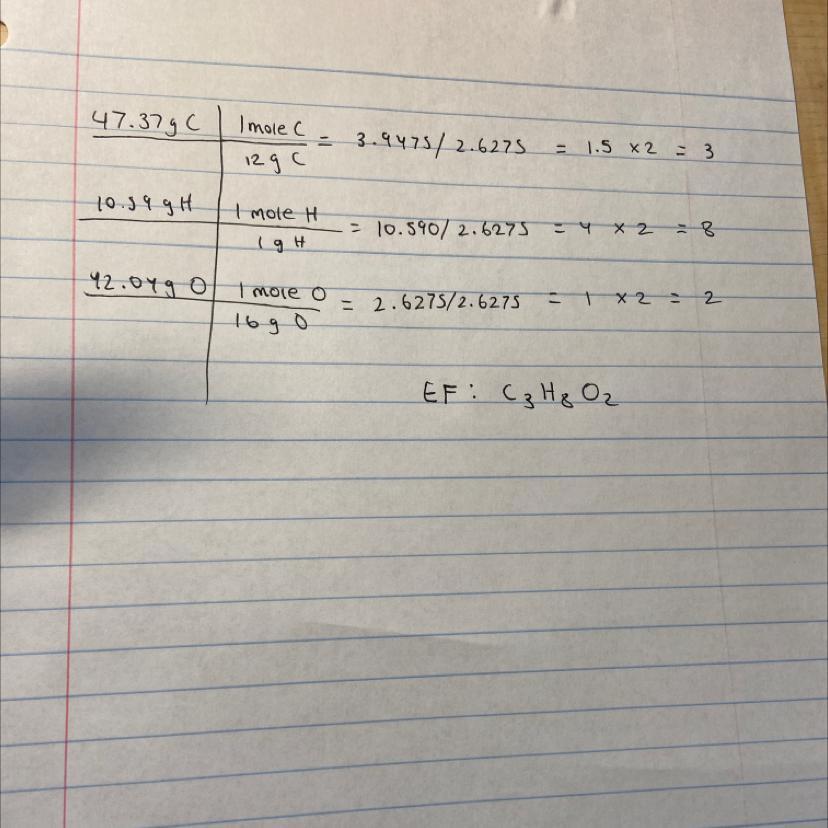 47.37g C 1 mole C = 3.9475/2.6275 = 1.5 x2 = 3
12 g C
10.59 g H 1 mole H = 10.590/2.6275 = 4 x 2 = 8
1 g H
42.04g O 1 mole O = 2.6275/2.6275 = 1 x2 = 2
16 g O
EF: C3H8O2